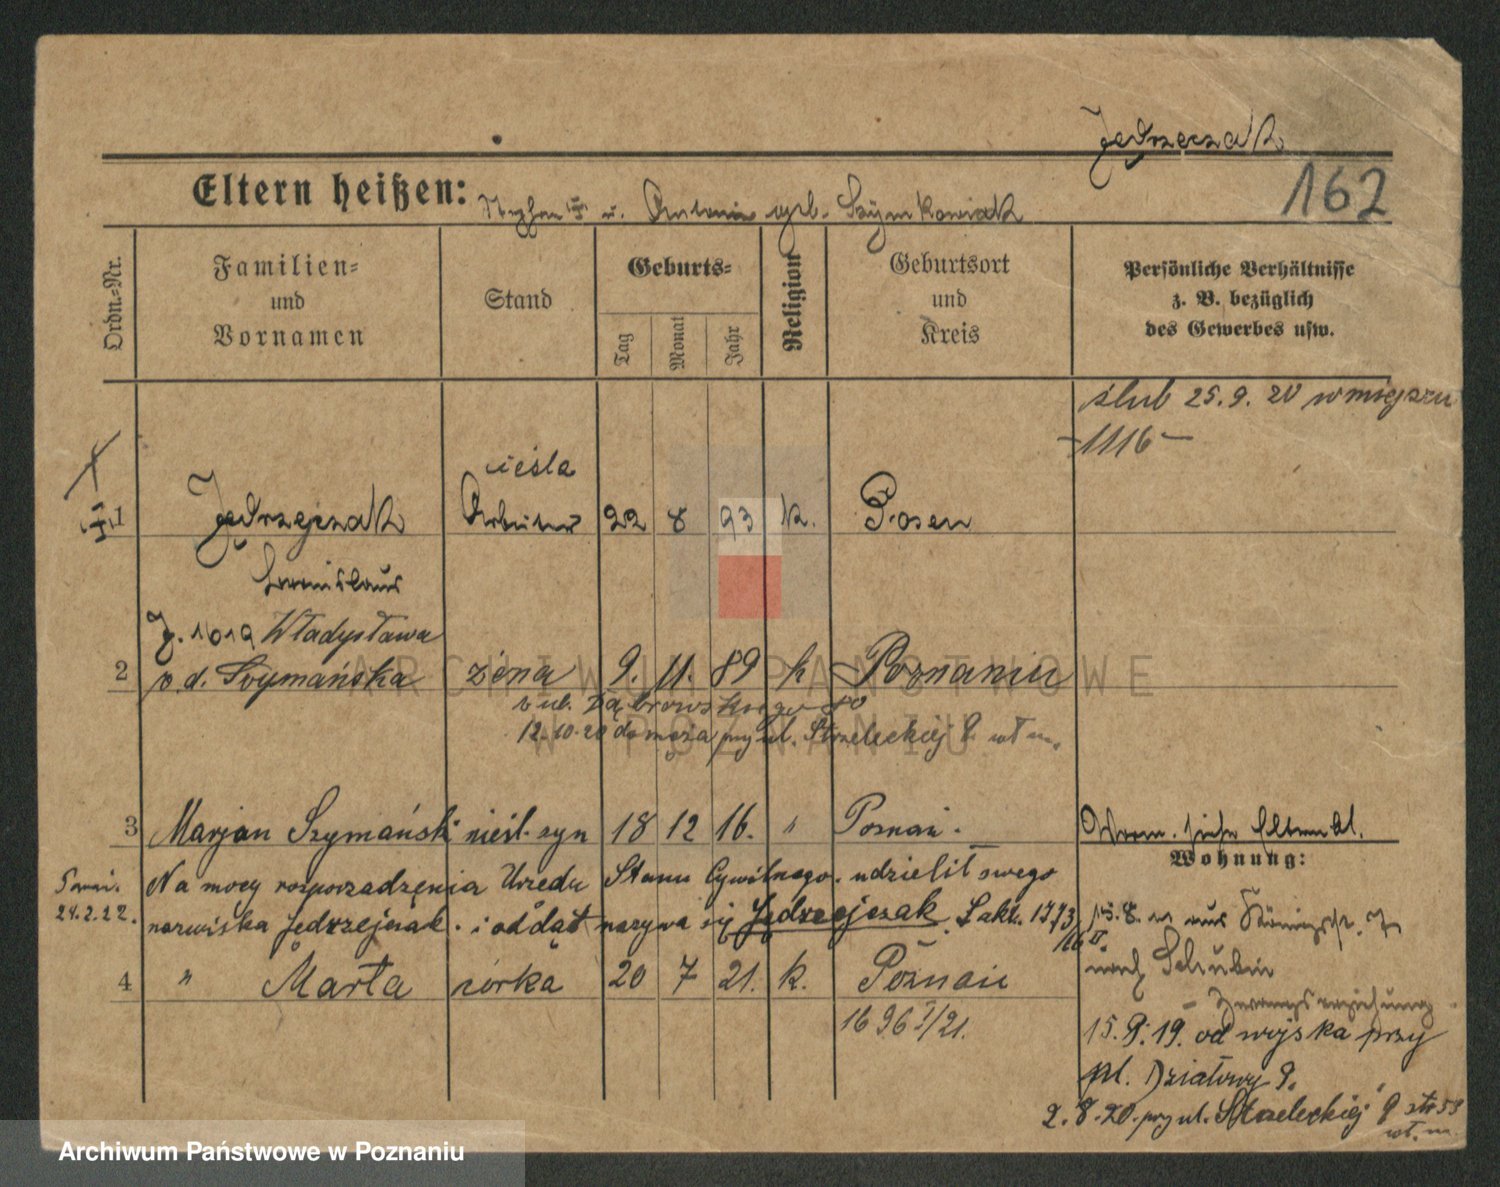 Jedrzejczak
162
Eltern heißen: Stephan u. Antonie geb. Szymkowiak
Ordn.=Nr.
Familien=
und
Vornamen
Stand
Geburts=
Tag
Monat
Jahr
Religion
Geburtsort
und
Kreis
Persönliche Verhältnisse
z. B. bezüglich
des Gewerbes usw.
ślub 25.9.20 w miejscu
-1116-
cieśla
1 Jedrzejczak Arbeiter 22 8 93 k. Posen
Władysława
2 z d. Szymańska żona 9. 11. 89 k Poznaniu
z ul. Dąbrowskiego
12.10.20 do męża przy ul. Strzeleckiej 8
3 Marjan Szymański nieśl. syn 18 12 16. " Poznań.
Wohnung:
24.2.22. Na mocy rozporządzenia Urzędu Stanu Cywilnego udzielił swego
nazwiska Jędrzejczak i odtąd nazywa się Jędrzejczak.
nach Schubin
- Zwangserziehung
4 " Marta córka 20 7 21. k. Poznań
15.8.19. od wojska przy
pl. Działowy 8.
2.8.20. przy ul. Strzeleckiej 8
ARCHIWUM PAŃSTWOWE
W POZNANIU
Archiwum Państwowe w Poznaniu